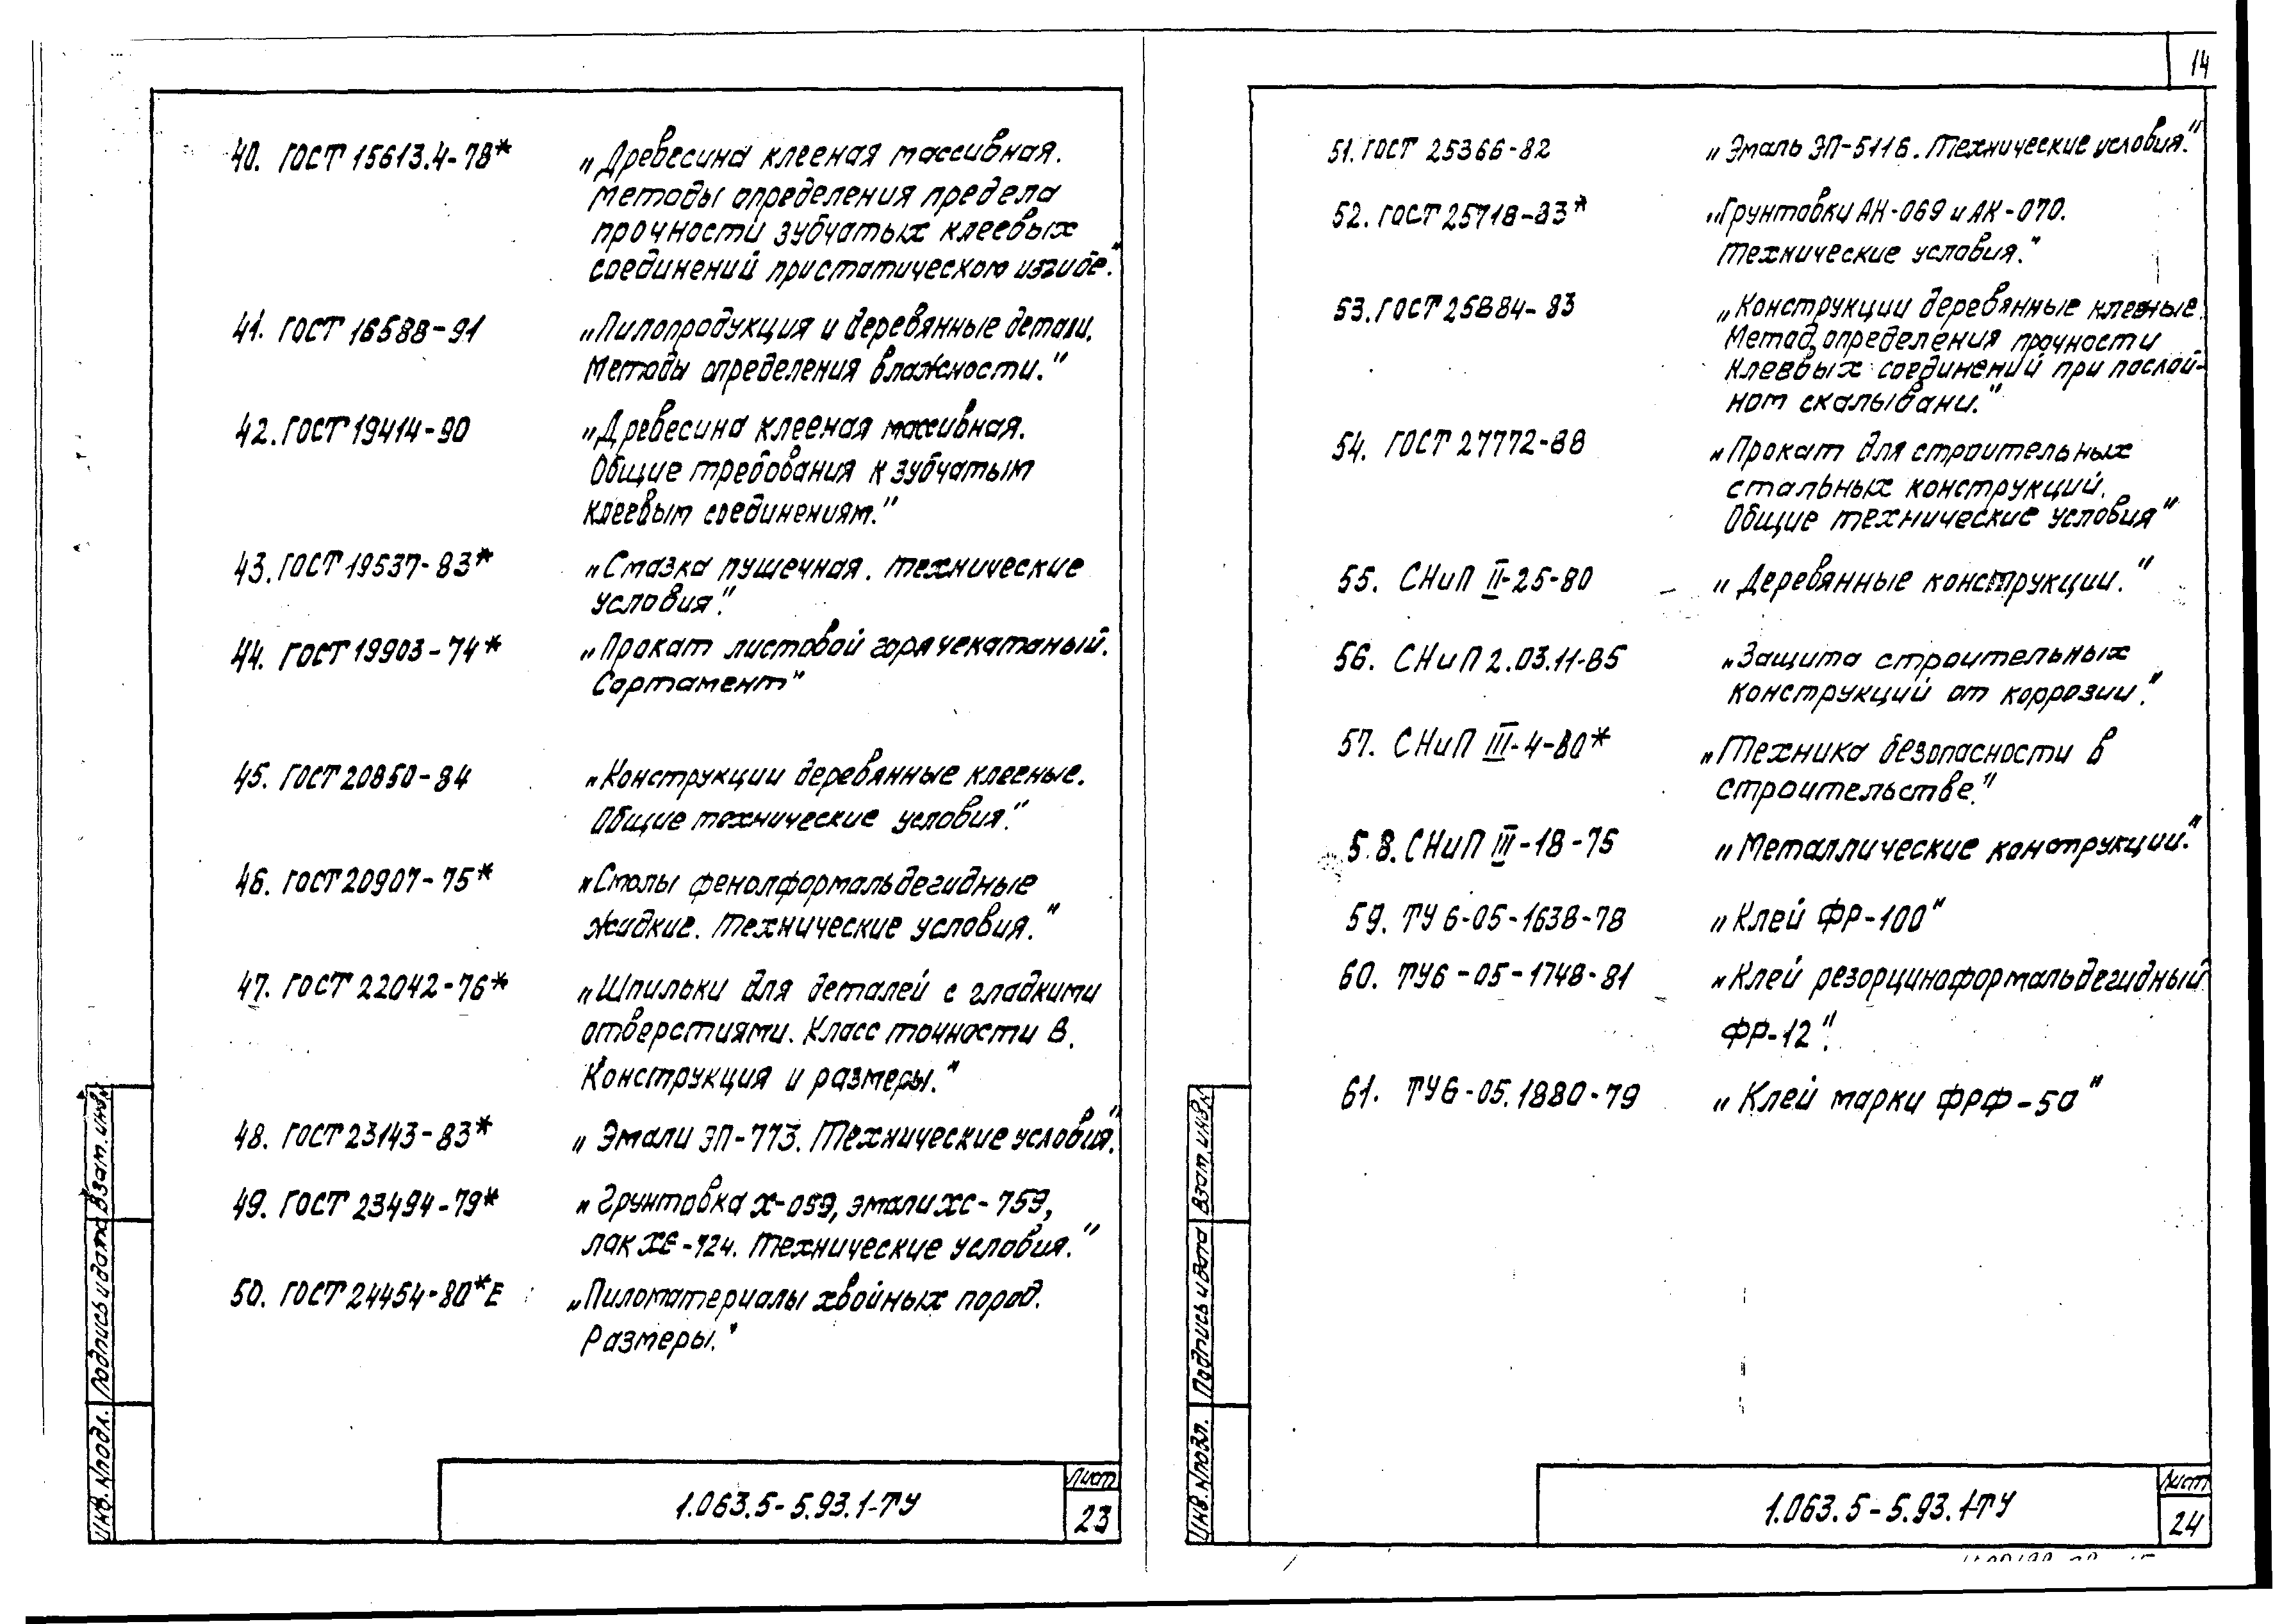 14
40. ГОСТ 15613.4-78* „Древесина клееная массивная.
Методы определения предела
прочности зубчатых клеевых
соединений пристатическом изгибе."
41. ГОСТ 16588-91 „Пилопродукция и деревянные детали.
Методы определения влажности."
42. ГОСТ 19414-90 „Древесина клееная массивная.
Общие требования к зубчатым
клеевым соединениям."
43. ГОСТ 19537-83* „Смазка пушечная. Технические
условия".
44. ГОСТ 19903-74* „Прокат листовой горячекатаный.
Сортамент"
45. ГОСТ 20850-84 „Конструкции деревянные клееные.
Общие технические условия."
46. ГОСТ 20907-75* „Смолы фенолформальдегидные
жидкие. Технические условия."
47. ГОСТ 22042-76* „Шпильки для деталей с гладкими
отверстиями. Класс точности В.
Конструкция и размеры."
48. ГОСТ 23143-83* „Эмали ЭП-773. Технические условия."
49. ГОСТ 23494-79* „Грунтовка Х-059, эмали ХС-759,
лак ХС-724. Технические условия."
50. ГОСТ 24454-80*Е „Пиломатериалы хвойных пород.
Размеры."
Взам. инв. N
Подпись и дата
Инв. N подл.
1.063.5-5.93.1-ТУ
Лист
23
51. ГОСТ 25366-82 „Эмаль ЭП-5116. Технические условия."
52. ГОСТ 25718-83* „Грунтовки АК-069 и АК-070.
Технические условия."
53. ГОСТ 25884-83 „Конструкции деревянные клееные.
Метод определения прочности
клеевых соединений при послой-
ном скалывани."
54. ГОСТ 27772-88 „Прокат для строительных
стальных конструкций.
Общие технические условия"
55. СНиП II-25-80 „Деревянные конструкции."
56. СНиП 2.03.11-85 „Защита строительных
конструкций от коррозии."
57. СНиП III-4-80* „Техника безопасности в
строительстве."
58. СНиП III-18-75 „Металлические конструкции."
59. ТУ 6-05-1638-78 „Клей ФР-100"
60. ТУ6-05-1748-81 „Клей резорциноформальдегидный
ФР-12".
61. ТУ6-05.1880-79 „Клей марки ФРФ-50"
Взам. инв. N
Подпись и дата
Инв. N подл.
1.063.5-5.93.1-ТУ
Лист
24